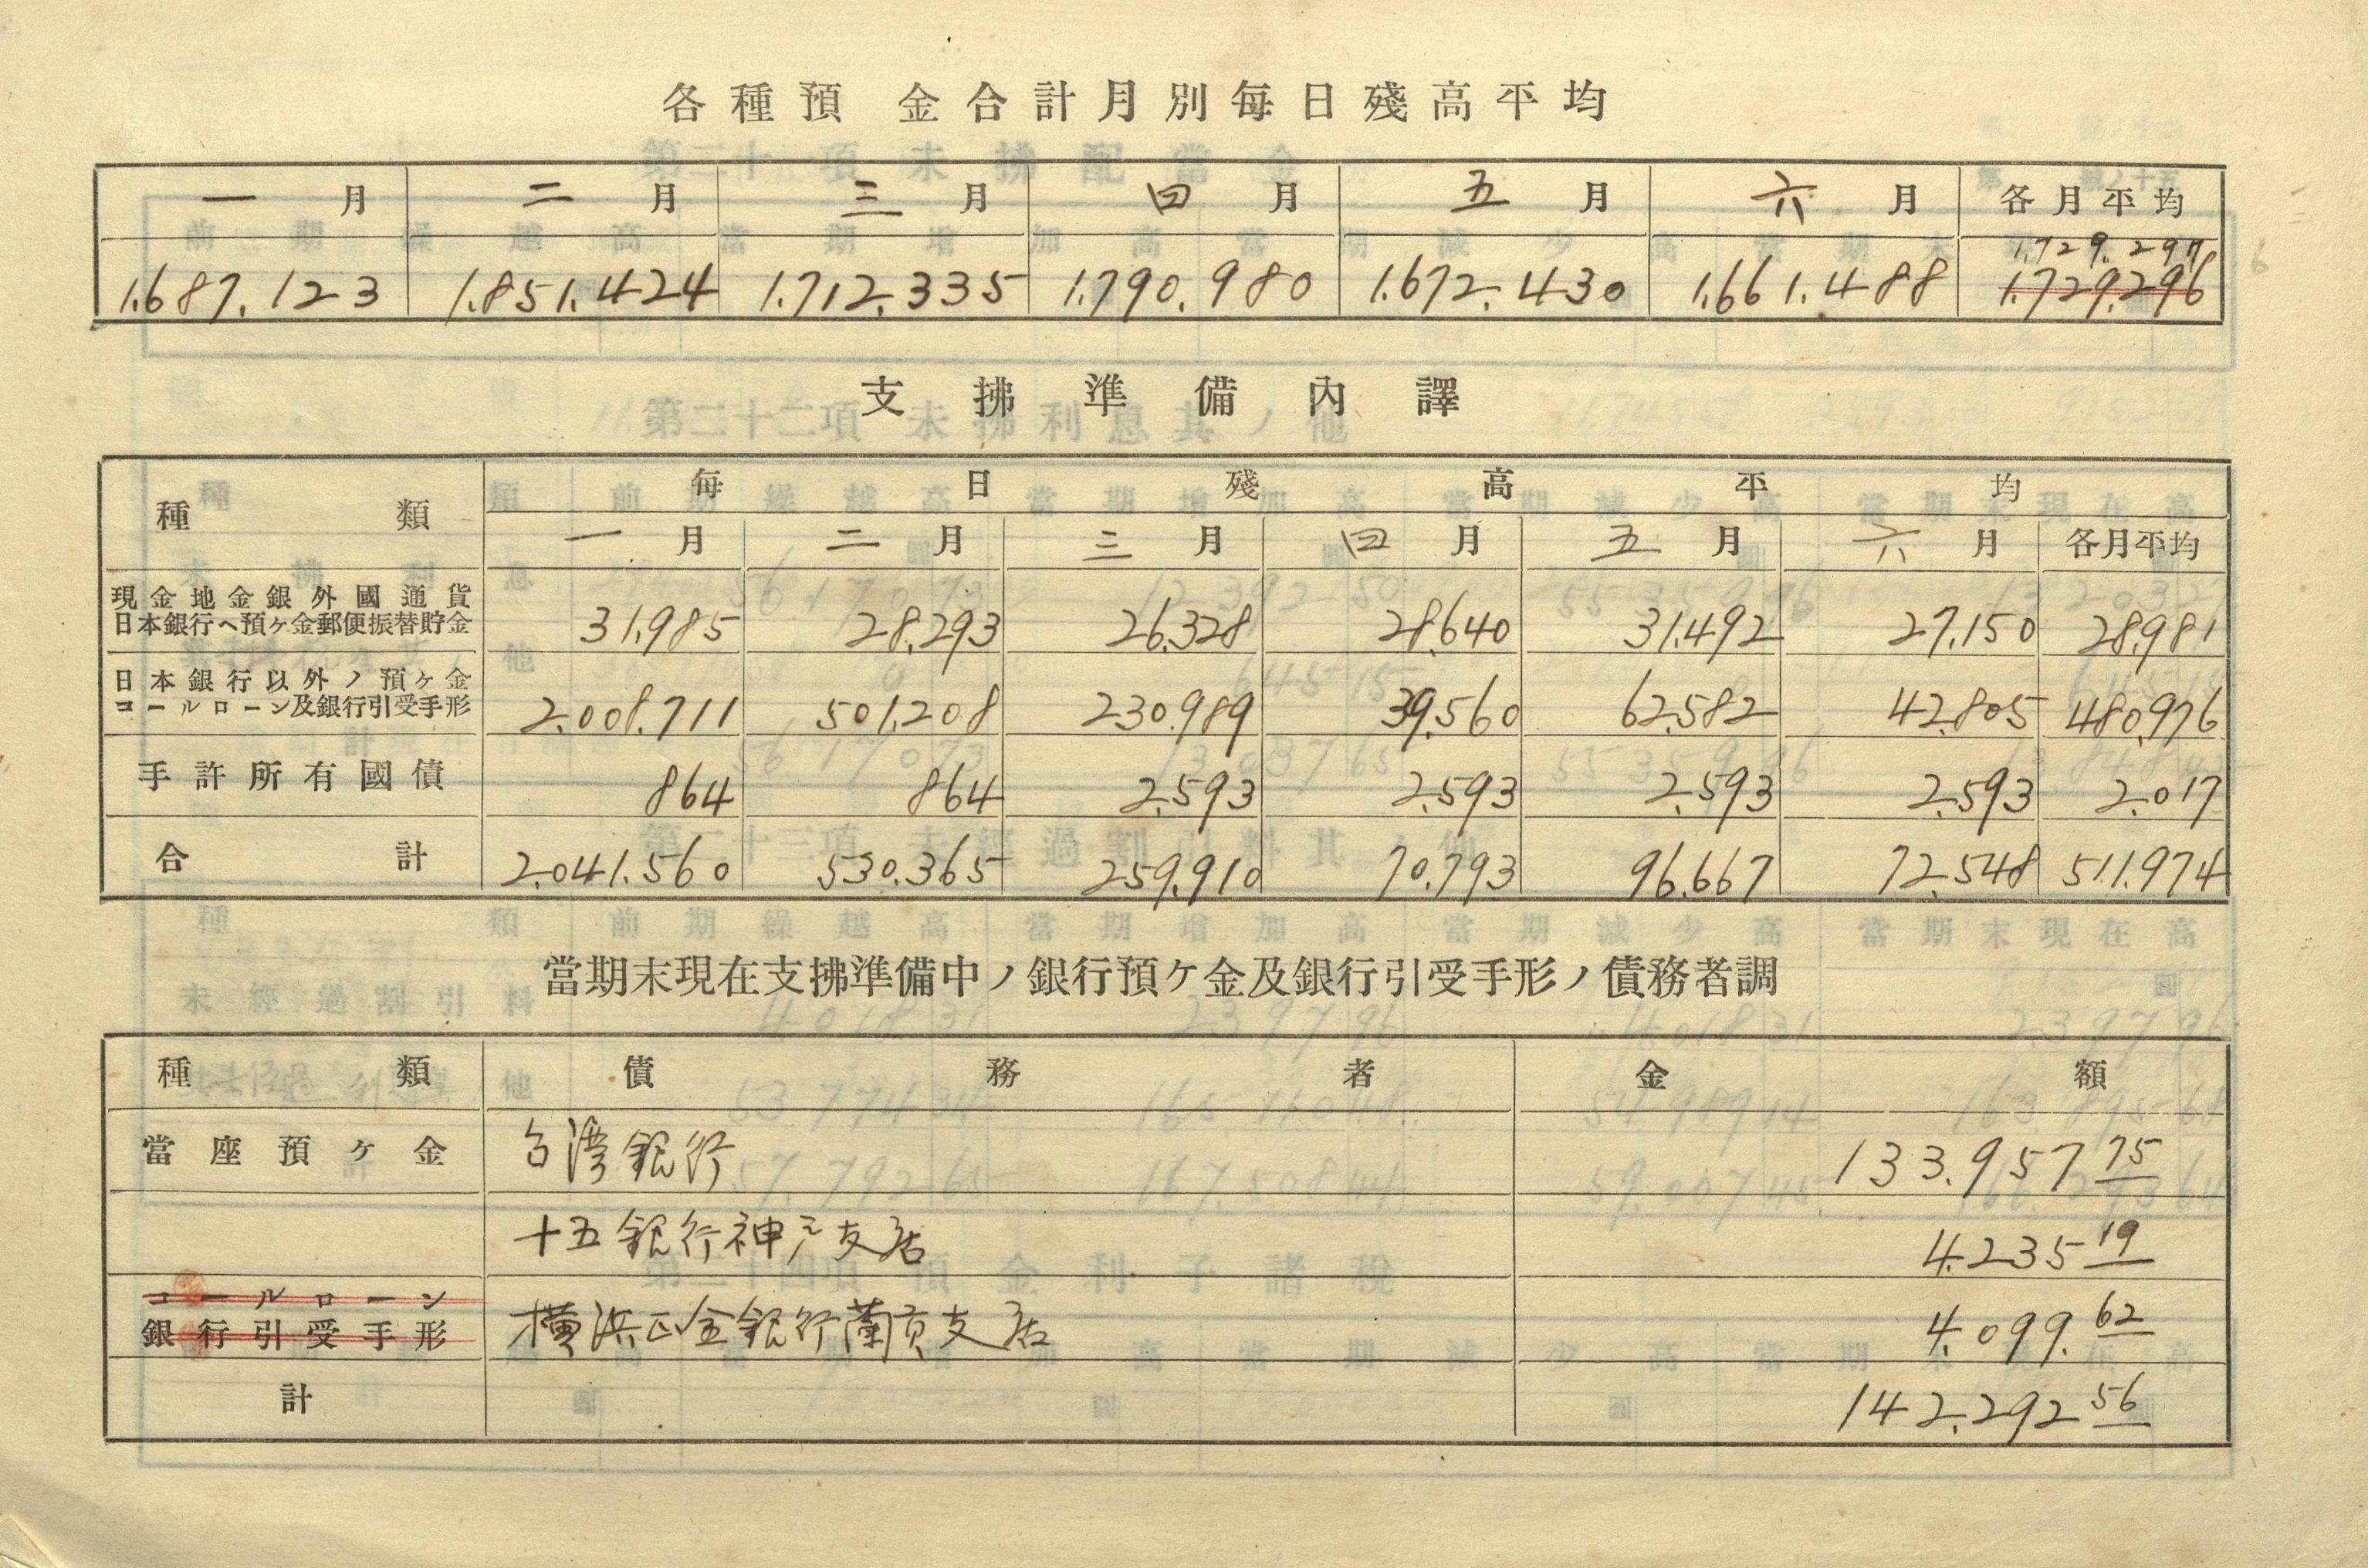 各種預金合計月別每日殘高平均
一月 二月 三月 四月 五月 六月 各月平均
1.729.297
1.687.123 1.851.424 1.712.335 1.790.980 1.672.430 1.661.488 1.729.296
支拂準備內譯
種類 每日殘高平均
一月 二月 三月 四月 五月 六月 各月平均
現金地金銀外國通貨
日本銀行ヘ預ヶ金郵便振替貯金 31.985 28.293 26.328 28.640 31.492 27.150 28.981
日本銀行以外ノ預ヶ金
コールローン及銀行引受手形 2.008.711 501.208 230.989 39.560 62.582 42.805 480.976
手許所有國債 864 864 2.593 2.593 2.593 2.593 2.017
合計 2.041.560 530.365 259.910 70.793 96.667 72.548 511.974
當期末現在支拂準備中ノ銀行預ケ金及銀行引受手形ノ債務者調
種類 債務者 金額
當座預ヶ金 台湾銀行 133.957 75
十五銀行神戸支店 4.235 19
コールローン
銀行引受手形 横浜正金銀行蘭貢支店 4.099.62
計 142.292 56